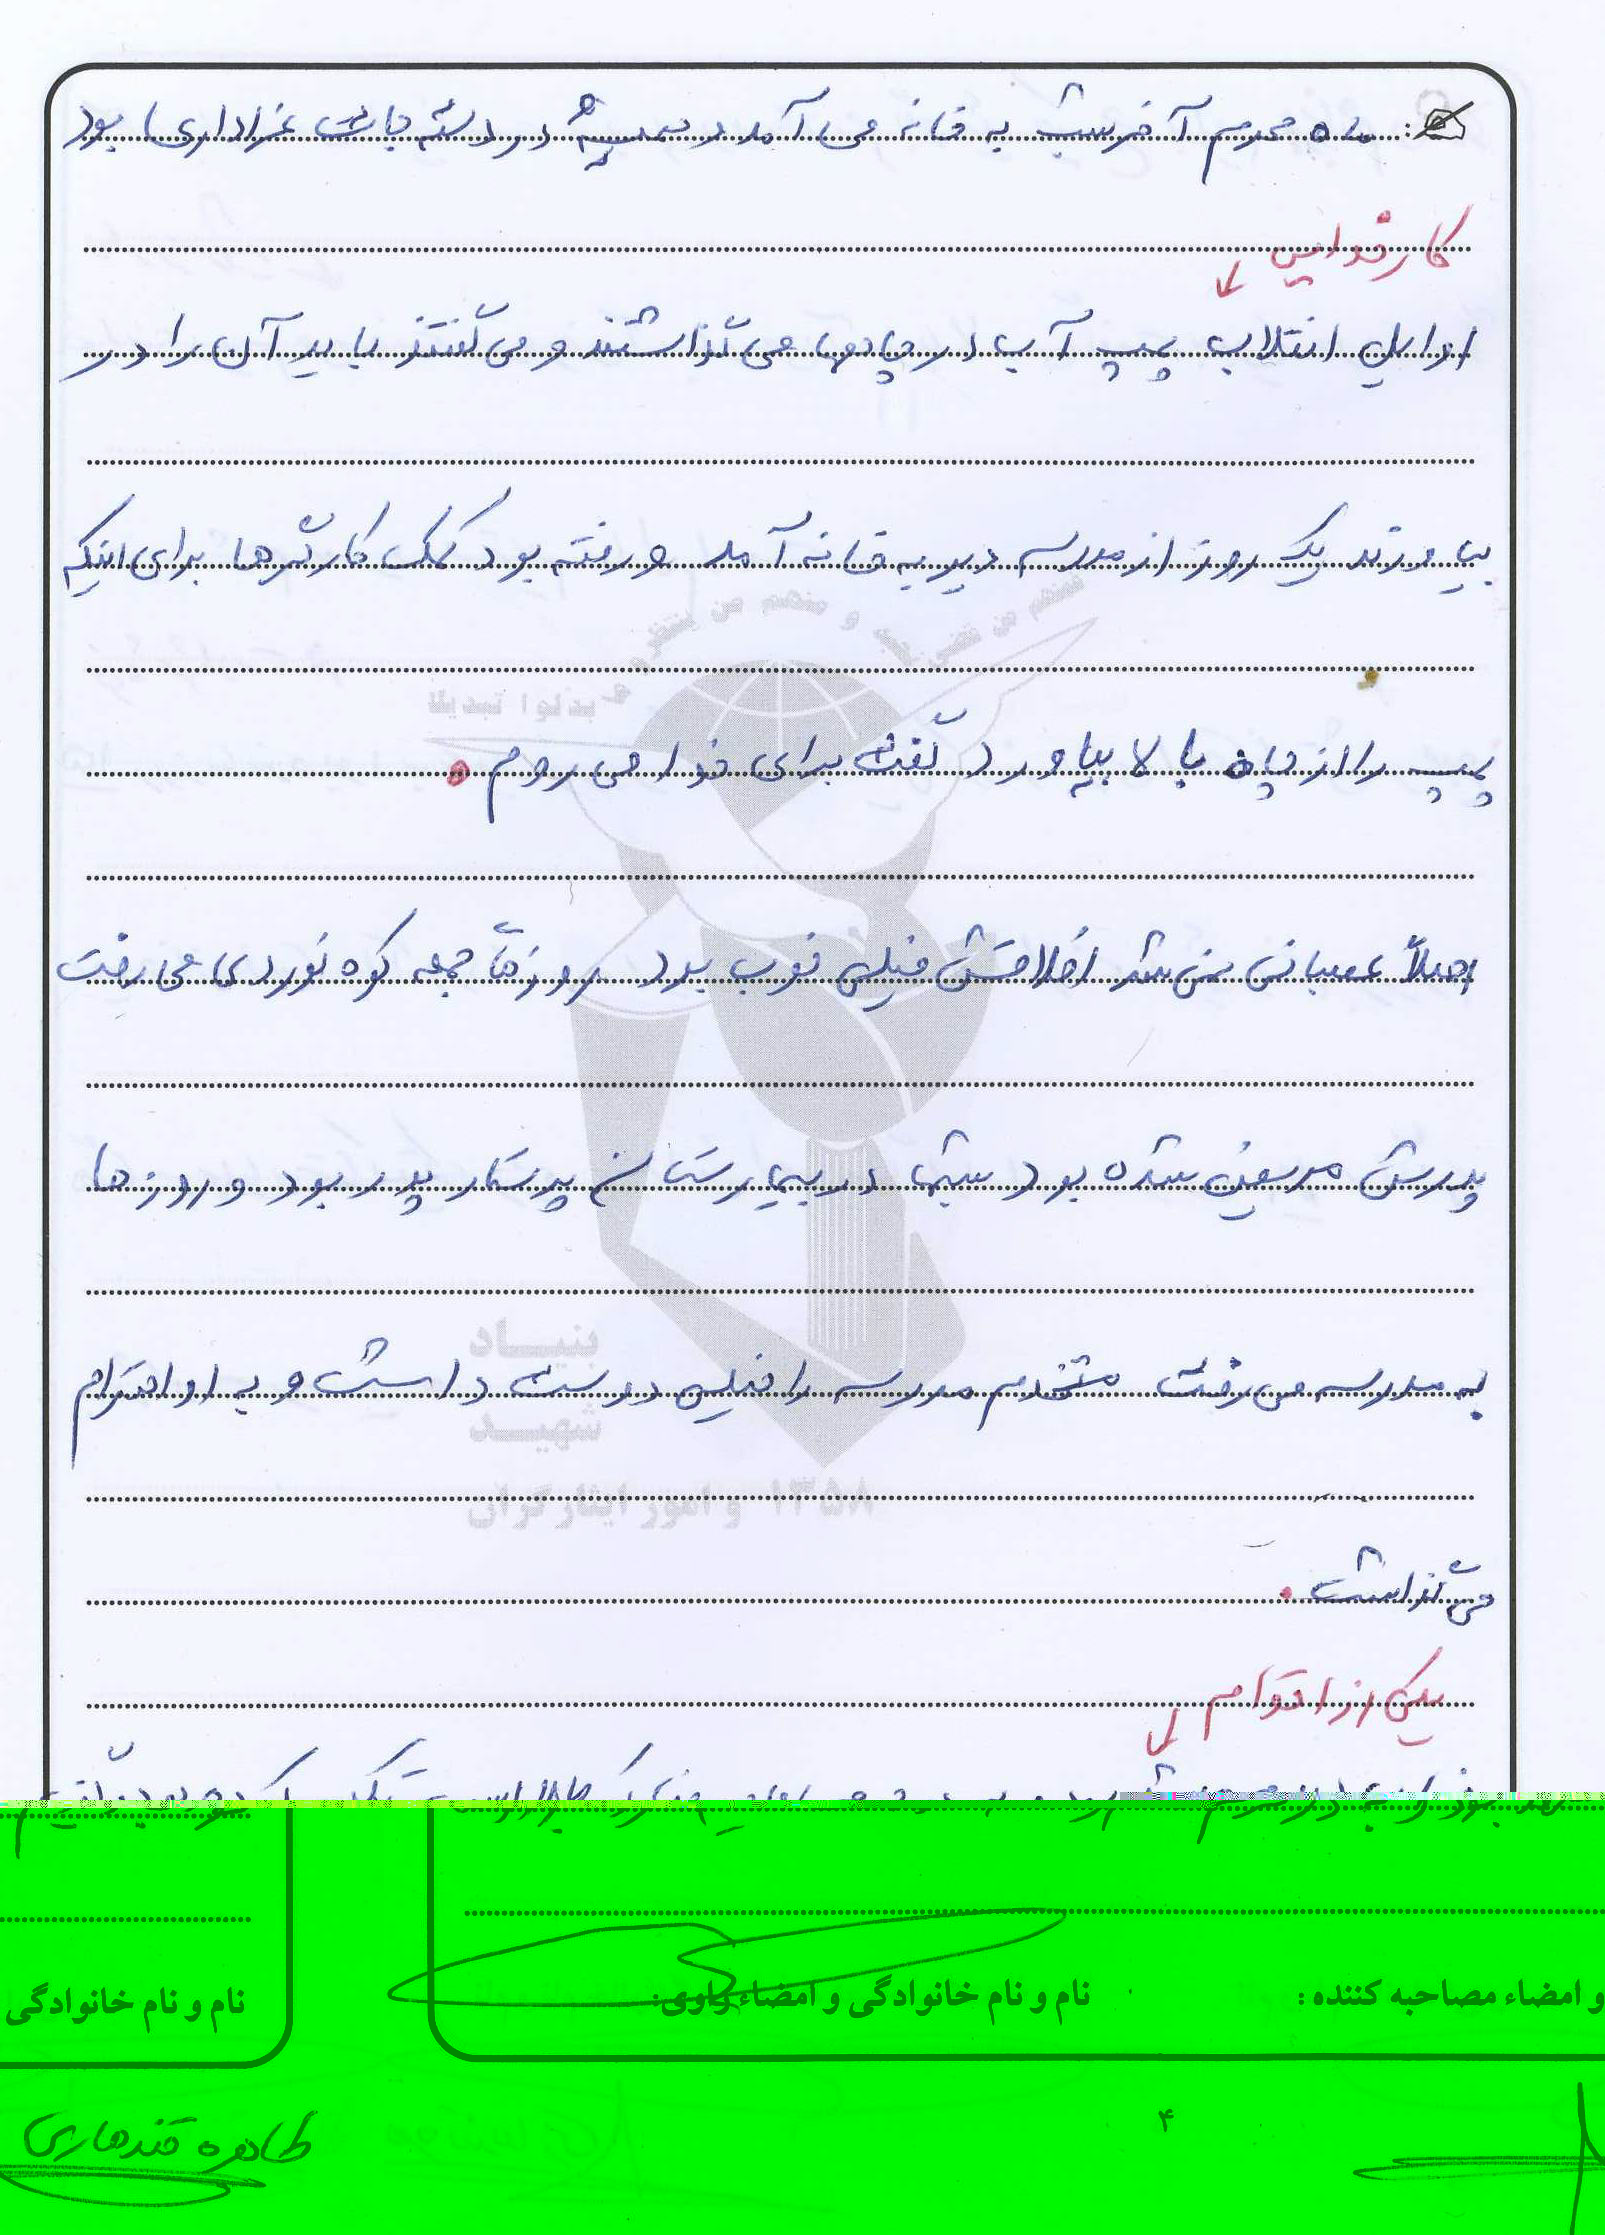 ماه محرم آخر شب به خانه می آمد و همیشه در دسته جات عزاداری بود
کار خدایی
اوایل انقلاب پمپ آب در چاهها می گذاشتند و می گفتند باید آن را در
بیاورند یک روز از مدرسه دیر به خانه آمد و رفته بود کمک کارگرها برای اینکه
پمپ را از چاه بالا بیاورد گفت برای خدا می روم
اصلاً عصبانی نمی شد اخلاقش خیلی خوب بود روزهای جمعه کوه نوردی می رفت
پدرش مریض شده بود شبها در بیمارستان پرستار پدر بود و روزها
به مدرسه می رفت مستخدم مدرسه را خیلی دوست داشت و به او احترام
می گذاشت
یکی از اقوام
بنیاد
شهید
و امور ایثارگران ۱۳۵۸
و امضاء مصاحبه کننده :
نام و نام خانوادگی و امضاء راوی:
نام و نام خانوادگی
۴
طاهره قندهاری